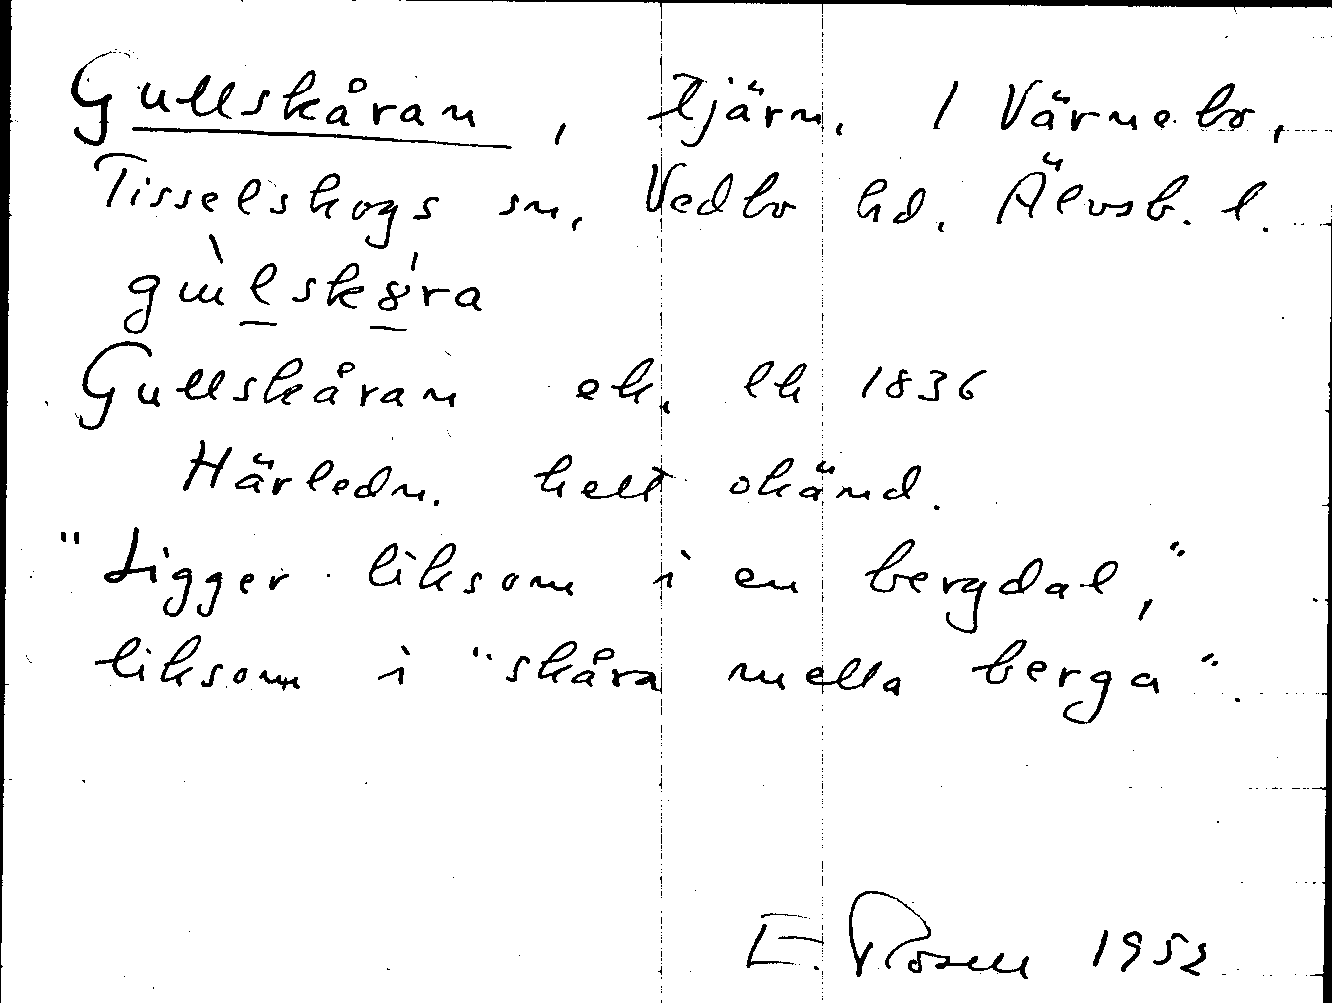 Gullskåran, tjärn. 1 Värnebo,
Tisselskogs sn, Vedbo hd. Älvsb. l.
Gullskåran ek. lk 1836
Härledn. helt okänd.
"Ligger liksom i en bergdal,"
liksom i "skåra mella berga".
E. Rosell 1952